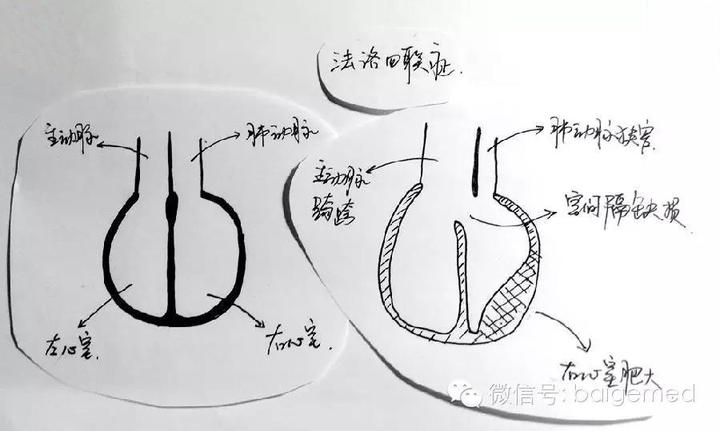 法洛四联症.
主动脉
肺动脉
左心室.
右心室.
主动脉
骑跨
肺动脉狭窄.
室间隔缺损.
右心室肥大
微信号: baigemed